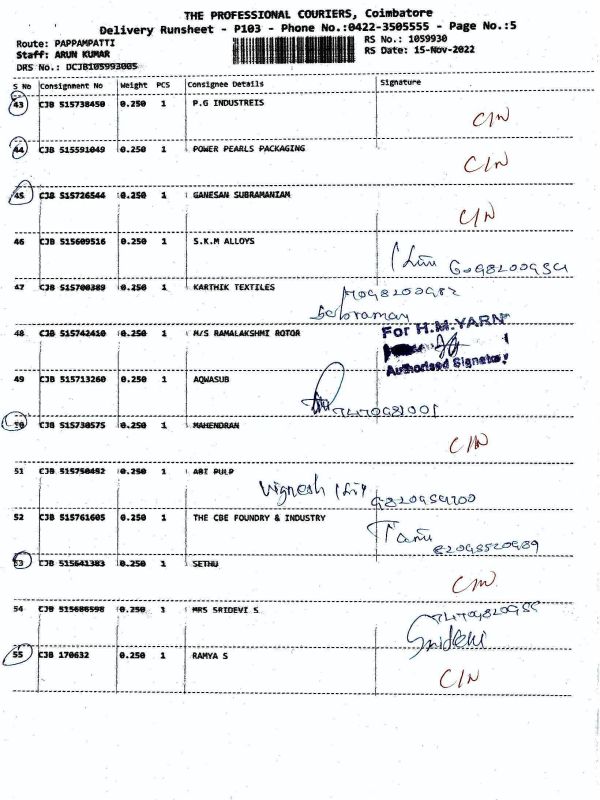 THE PROFESSIONAL COURIERS, Coimbatore
Delivery Runsheet - P103 - Phone No.:0422-3505555 - Page No.:5
Route: PAPPAMPATTI
Staff: ARUN KUMAR
DRS No.: DCJB105993005
RS No.: 1059930
RS Date: 15-Nov-2022
S No Consignment No Weight PCS Consignee Details Signature
43 CJB 515738450 0.250 1 P.G INDUSTREIS
C/N
44 CJB 515591049 0.250 1 POWER PEARLS PACKAGING
C/N
45 CJB 515726544 0.250 1 GANESAN SUBRAMANIAM
C/N
46 CJB 515609516 0.250 1 S.K.M ALLOYS
47 CJB 515700389 0.250 1 KARTHIK TEXTILES
48 CJB 515742410 0.250 1 M/S RAMALAKSHMI ROTOR
For H.M.YARN
Authorised Signatory
49 CJB 515713260 0.250 1 AQWASUB
50 CJB 515730575 0.250 1 MAHENDRAN
C/N
51 CJB 515750452 0.250 1 ABI PULP
Vignesh
52 CJB 515761605 0.250 1 THE CBE FOUNDRY & INDUSTRY
53 CJB 515641383 0.250 1 SETHU
C/N
54 CJB 515686598 0.250 1 MRS SRIDEVI S
Sridevi
55 CJB 170632 0.250 1 RAMYA S
C/N